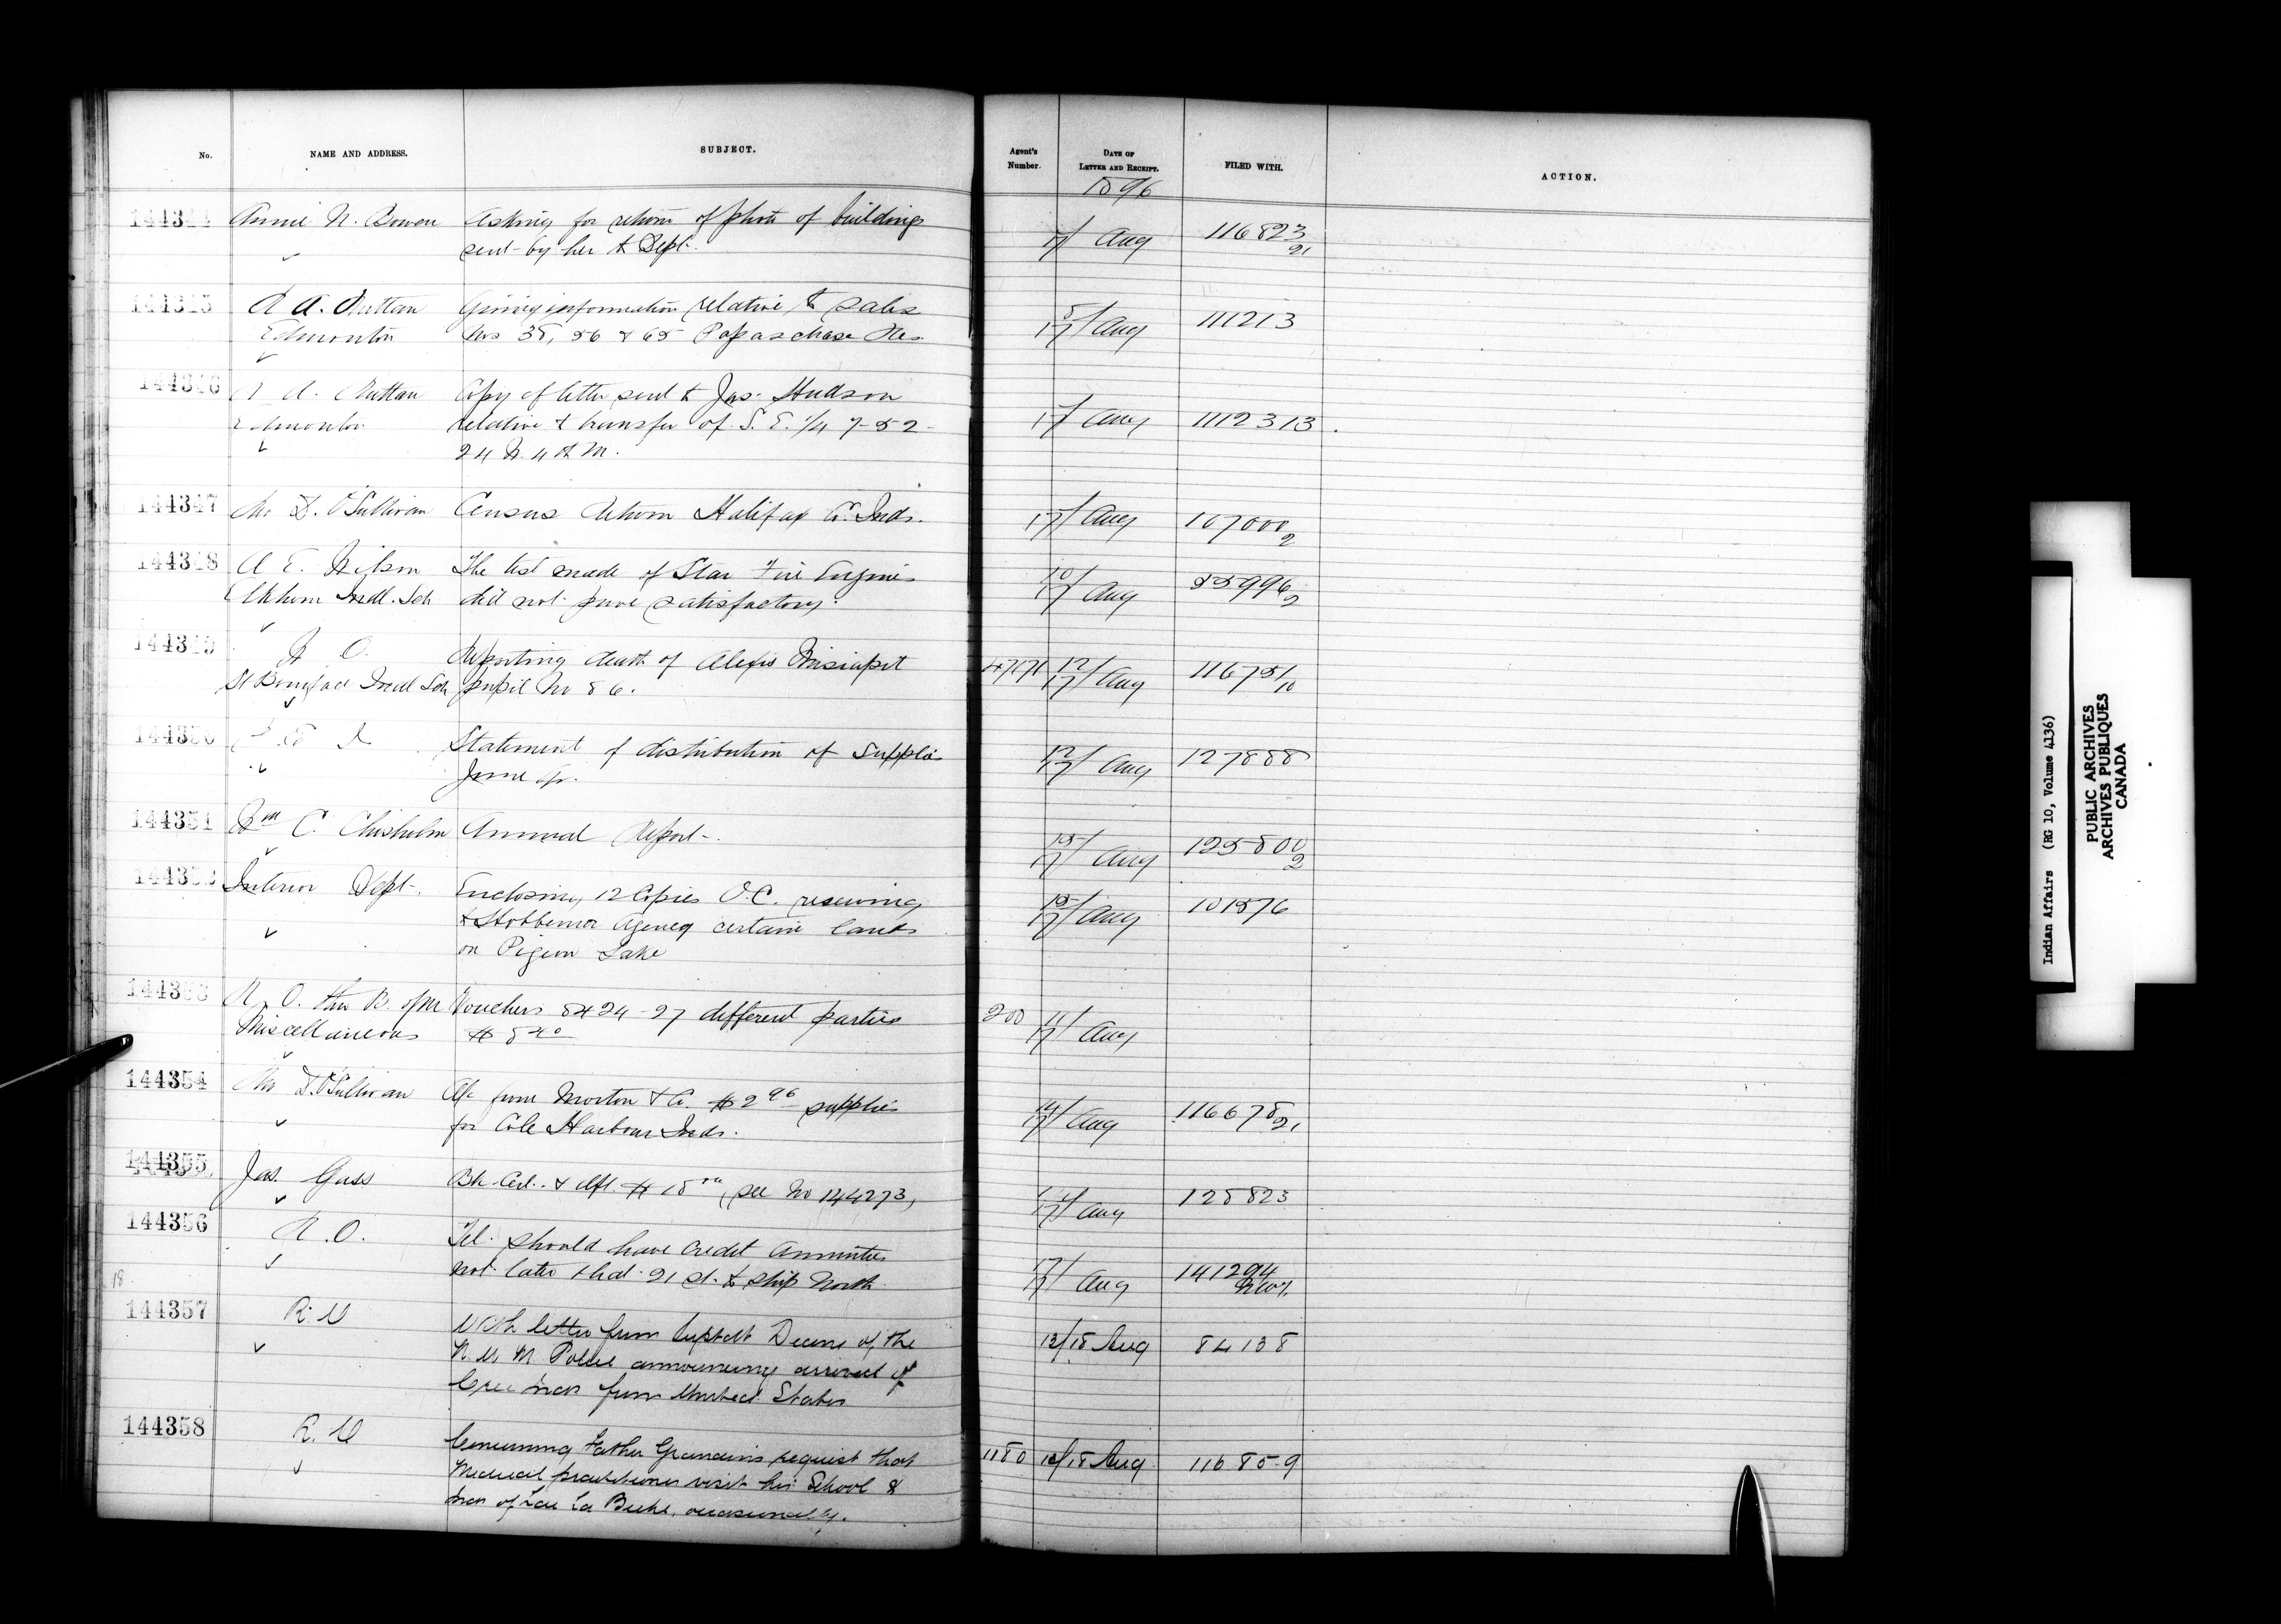 No.
NAME AND ADDRESS.
SUBJECT.
Agent's Number.
DATE OF LETTER AND RECEIPT.
FILED WITH.
ACTION.
1896
144344 Annie N. Bowen Asking for return of photo of buildings
sent by her to Dept.
17/ Aug 116823
144345 A. Nattau Giving information relative to sales
Edmonton Nos 38, 56 & 65 Papaschase Res.
17/ Aug 111213
144346 A. Nattau Copy of letter sent to Jas. Hudson
Edmonton relative to transfer of S. E. 1/4 7-52-
24 W. 4th M.
17/ Aug
144347 D. O'Sullivan Census Return Halifax Co. Inds.
17/ Aug 107000 2
144348 A E. Wilson The test made of Star Fire Engine
Elkhorn Indl. Sch did not prove satisfactory.
10/17 Aug 55996 2
144349 Reporting death of Alexis
St Boniface Indl Sch pupil No 86.
12/17 Aug 116751/10
144350 Statement of distribution of supplies
June
12/17 Aug 127888
144351 Wm C. Chisholm Annual Report.
15/17 Aug 125800 2
144352 Interior Dept. Enclosing 12 Copies O.C. reserving
to Hobbema Agency certain lands
on Pigeon Lake
15/17 Aug 101576
144353 Vouchers 8424-27 different parties
Miscellaneous
200 11/17 Aug
144354 D. O'Sullivan A/c from Morton & Co. $2 96 supplies
for Cole Harbour Inds.
14/17 Aug 116678
144355 Jas. Gass Bk Cert. & dft. $18 see No 144273,
17/ Aug 125823
144356 R.O. Tel. should have credit annuities
not later that 21 st. to ship North
17/17 Aug 141294
18
144357 R. With letter from Supt Deane of the
N. W. M. Police announcing arrival of
Cree Inds from United States
12/18 Aug 84138
144358 R. Concerning Father Grandin's request that
Medical practitioner visit his School &
Inds of Lac La Biche, occasionally.
1180 12/18 Aug 11685-9
Indian Affairs (RG 10, Volume 4136)
PUBLIC ARCHIVES
ARCHIVES PUBLIQUES
CANADA